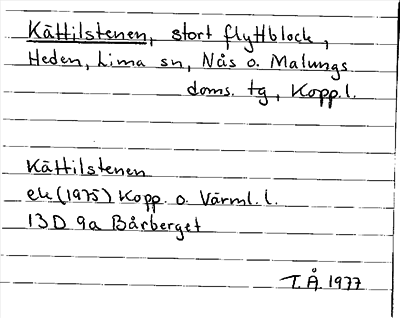 Kättilstenen, stort flyttblock,
Heden, Lima sn, Nås o. Malungs
doms. tg, Kopp.l.
Kättilstenen
ek (1975) Kopp. o. Värml. l.
13D 9a Bårberget
T.Å. 1977